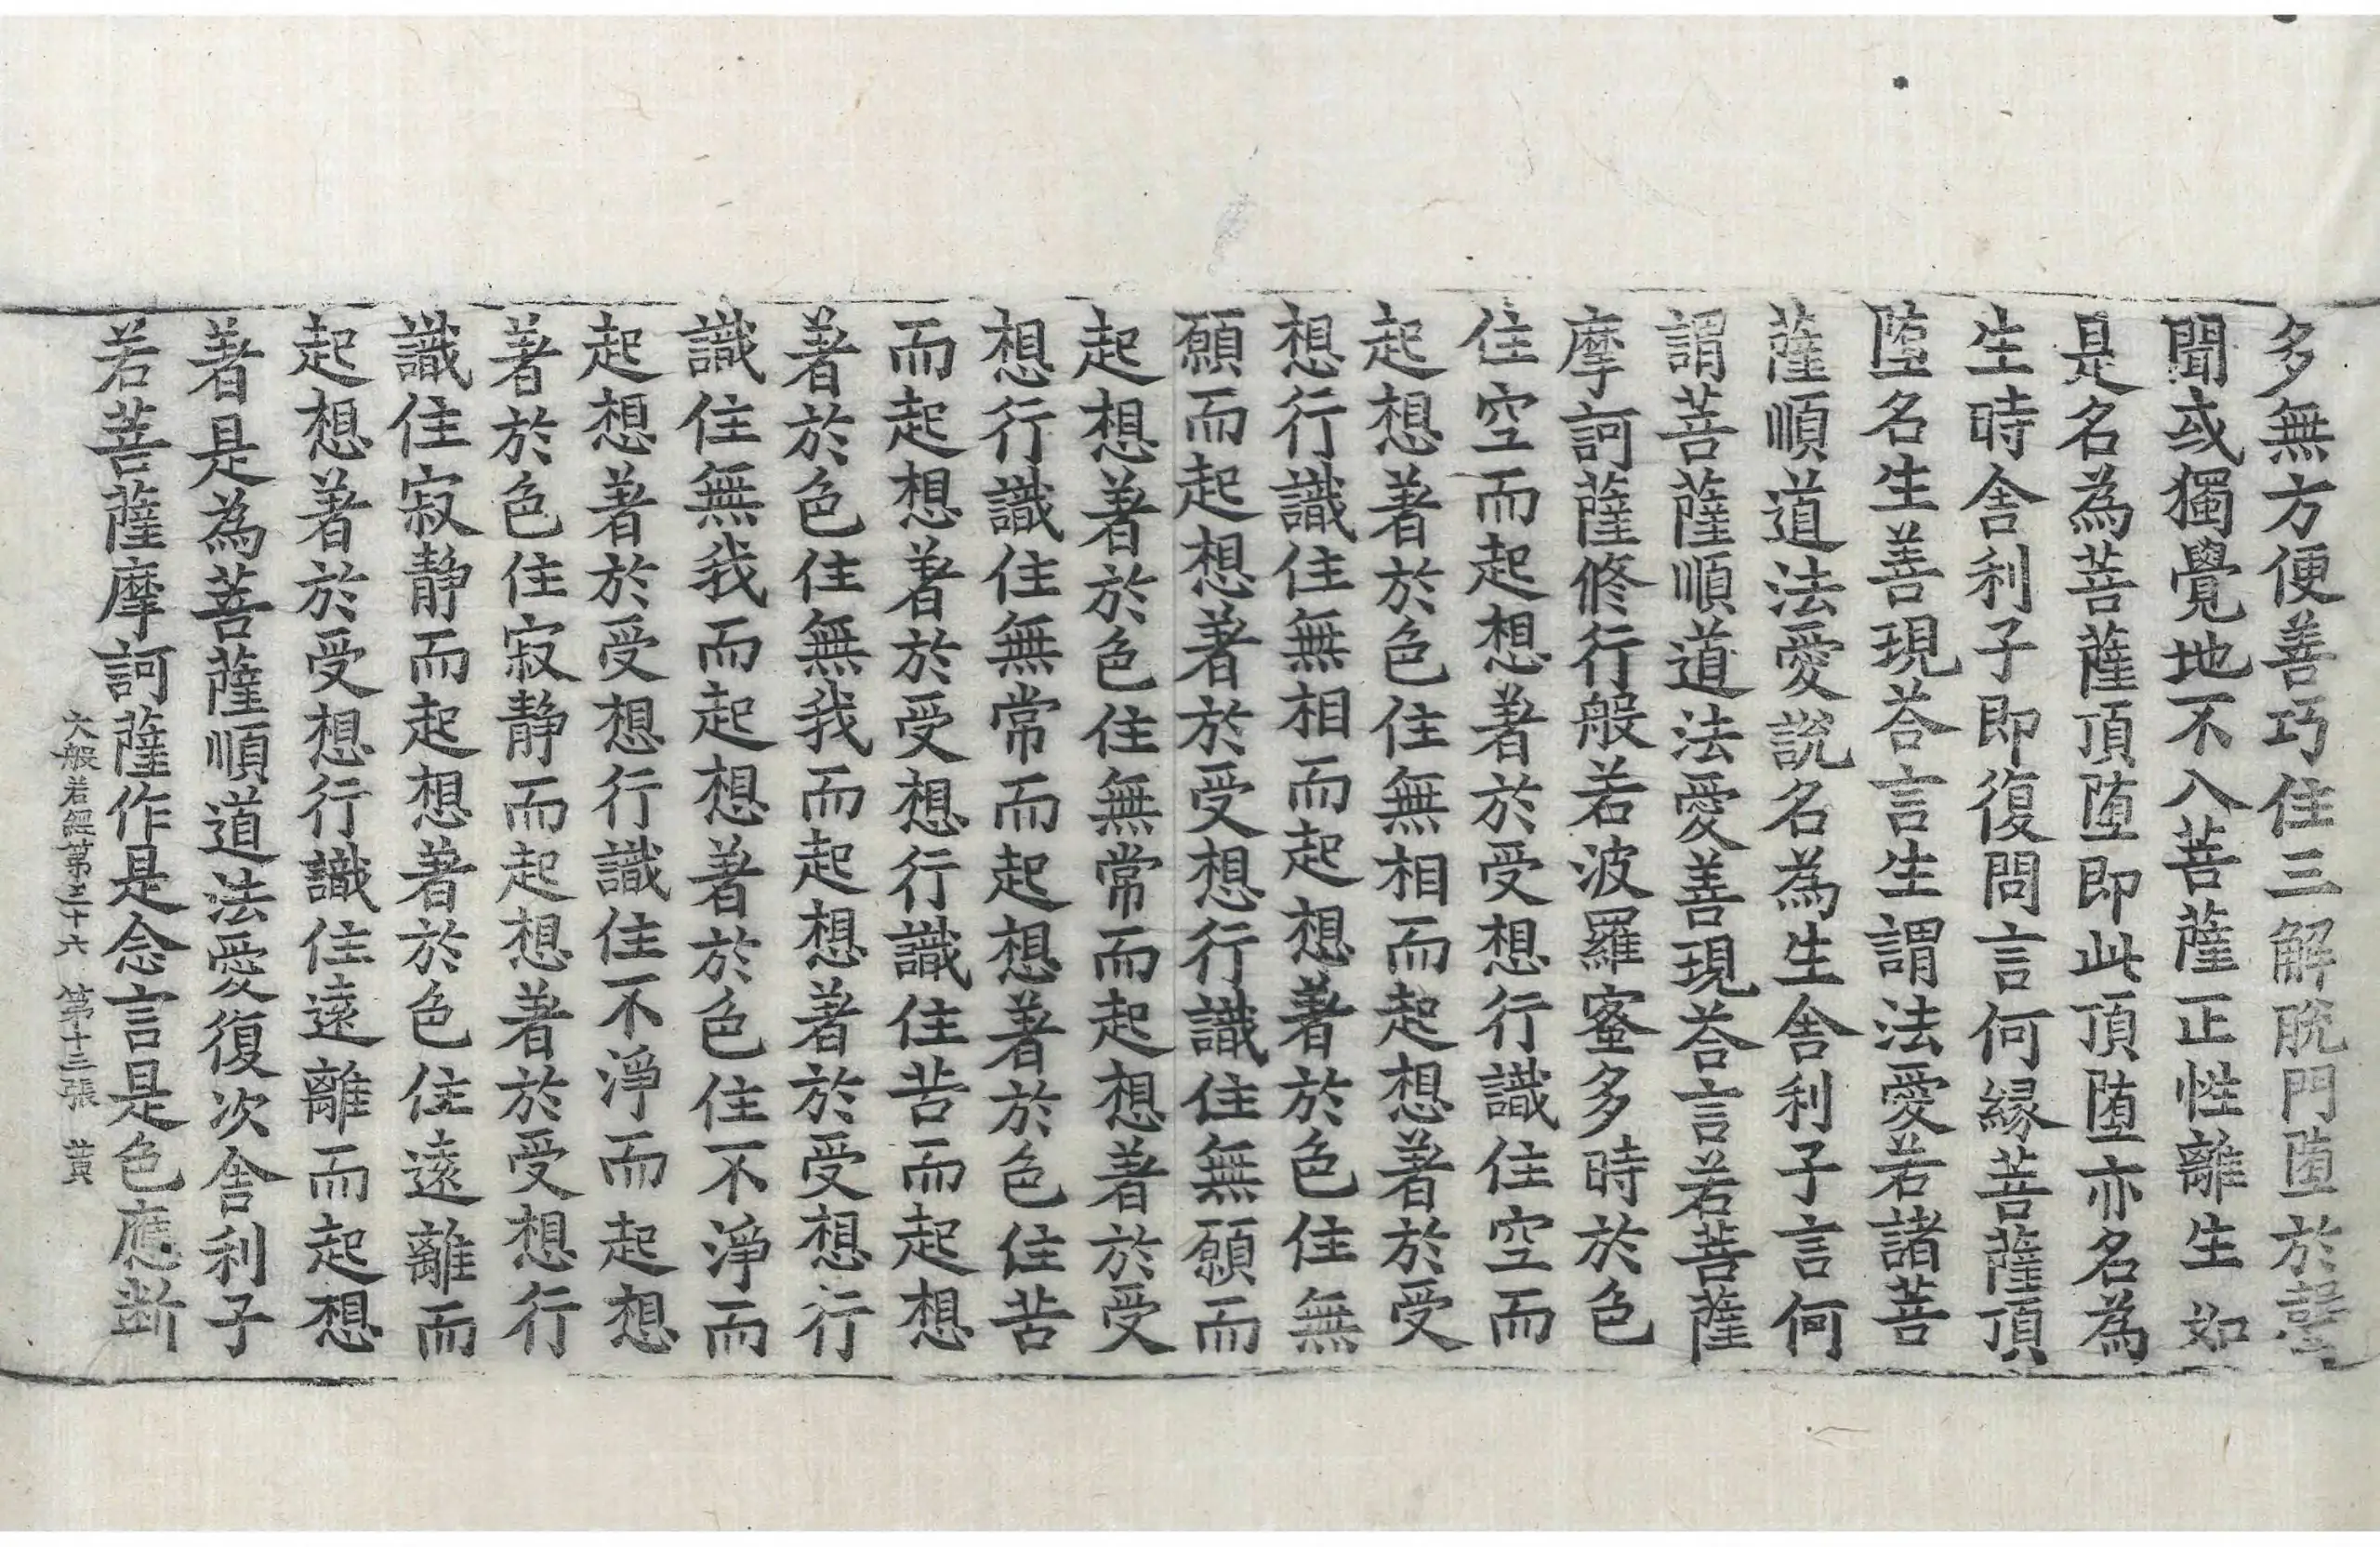 多無方便善巧住三解脫門墮於聲
聞或獨覺地不入菩薩正性離生如
是名為菩薩頂墮即此頂墮亦名為
生時舍利子即復問言何緣菩薩頂
墮名生善現荅言生謂法愛若諸菩
薩順道法愛說名為生舍利子言何
謂菩薩順道法愛善現荅言若菩薩
摩訶薩修行般若波羅蜜多時於色
住空而起想著於受想行識住空而
起想著於色住無相而起想著於受
想行識住無相而起想著於色住無
願而起想著於受想行識住無願而
起想著於色住無常而起想著於受
想行識住無常而起想著於色住苦
而起想著於受想行識住苦而起想
著於色住無我而起想著於受想行
識住無我而起想著於色住不淨而
起想著於受想行識住不淨而起想
著於色住寂静而起想著於受想行
識住寂静而起想著於色住遠離而
起想著於受想行識住遠離而起想
著是為菩薩順道法愛復次舍利子
若菩薩摩訶薩作是念言是色應斷
大般若經第三十六 第十三張 黄